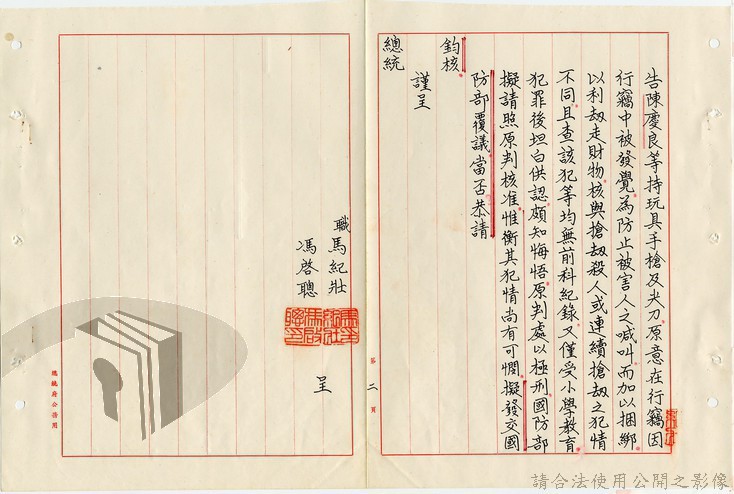 告陳慶良等持玩具手槍及尖刀原意在行竊因
行竊中被發覺為防止被害人之喊叫而加以捆綁
以利劫走財物核與搶劫殺人或連續搶劫之犯情
不同且查該犯等均無前科紀錄又僅受小學教育
犯罪後坦白供認頗知悔悟原判處以極刑國防部
擬請照原判核准惟衡其犯情尚有可憫擬發交國
防部覆議當否恭請
鈞核
謹呈
總統
職馬紀壯
馮啓聰
呈
第二頁
總統府公務用
請合法使用公開之影像